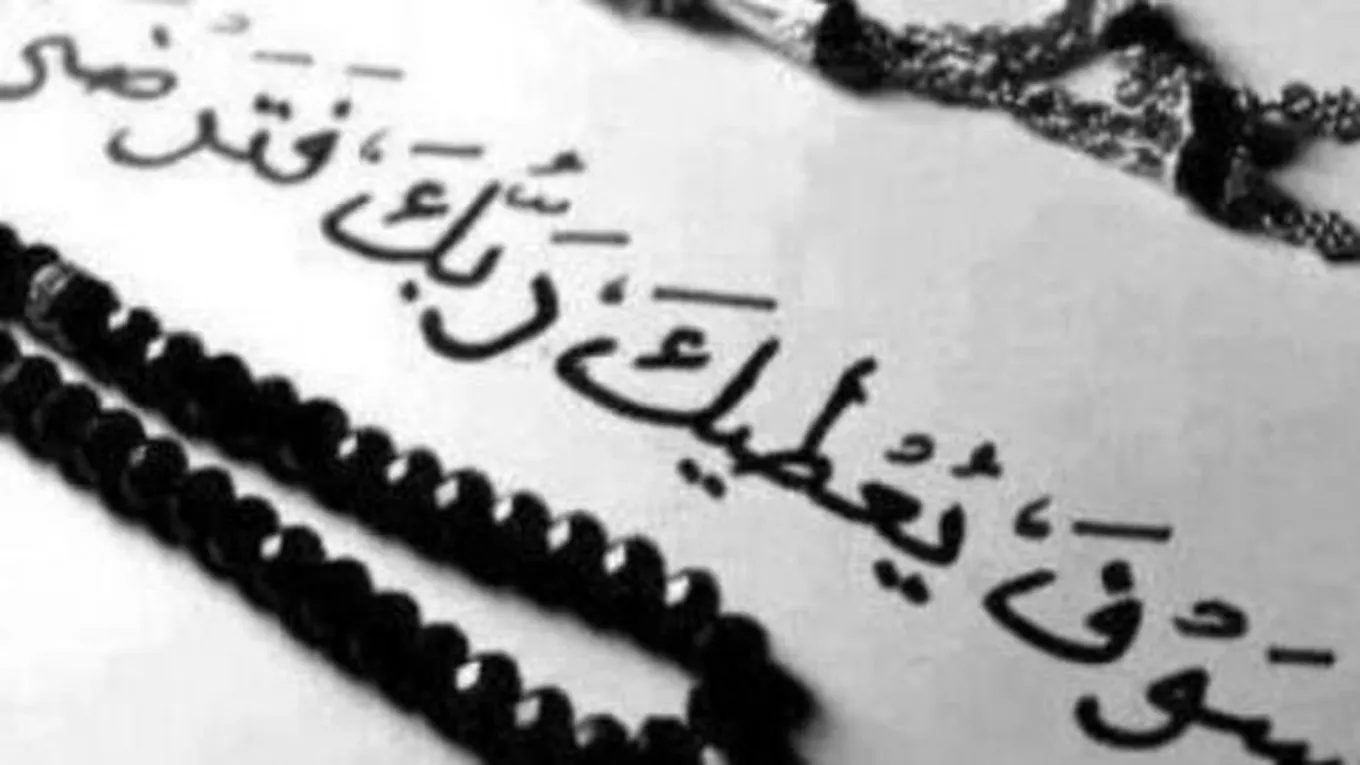 سَوْفَ يُعْطِيكَ رَبُّكَ فَتَرْضى